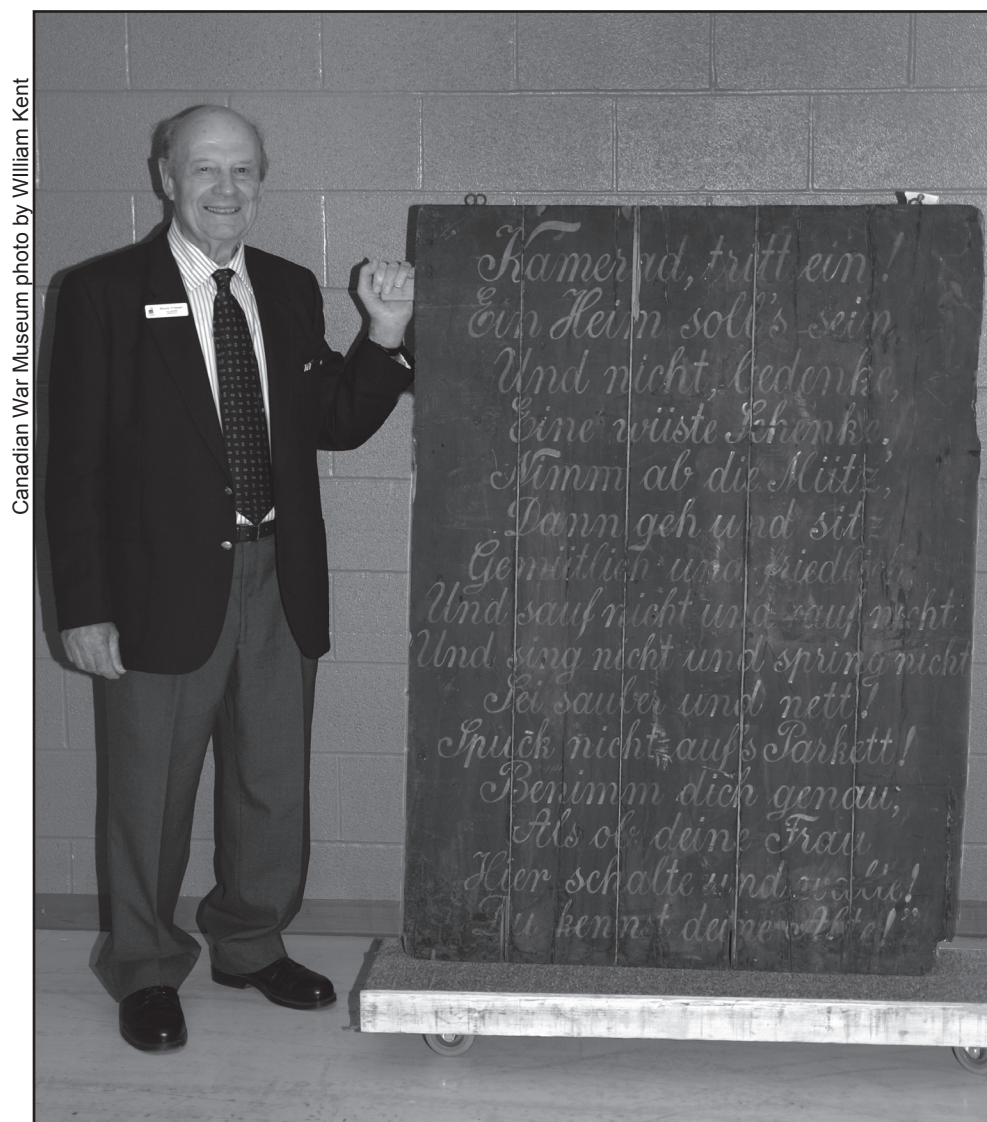 Canadian War Museum photo by William Kent
Kamerad, tritt ein!
Ein Heim soll's sein
Und nicht, bedenke,
Eine wüste Schenke,
Nimm ab die Mütz,
Dann geh und sitz
Gemütlich und friedlich,
Und sauf nicht und rauf nicht
Und sing nicht und spring nicht
Sei sauber und nett!
Spuck nicht auf's Parkett!
Benimm dich genau,
Als ob deine Frau
Hier schalte und walte!
Du kennst deine Alte!"